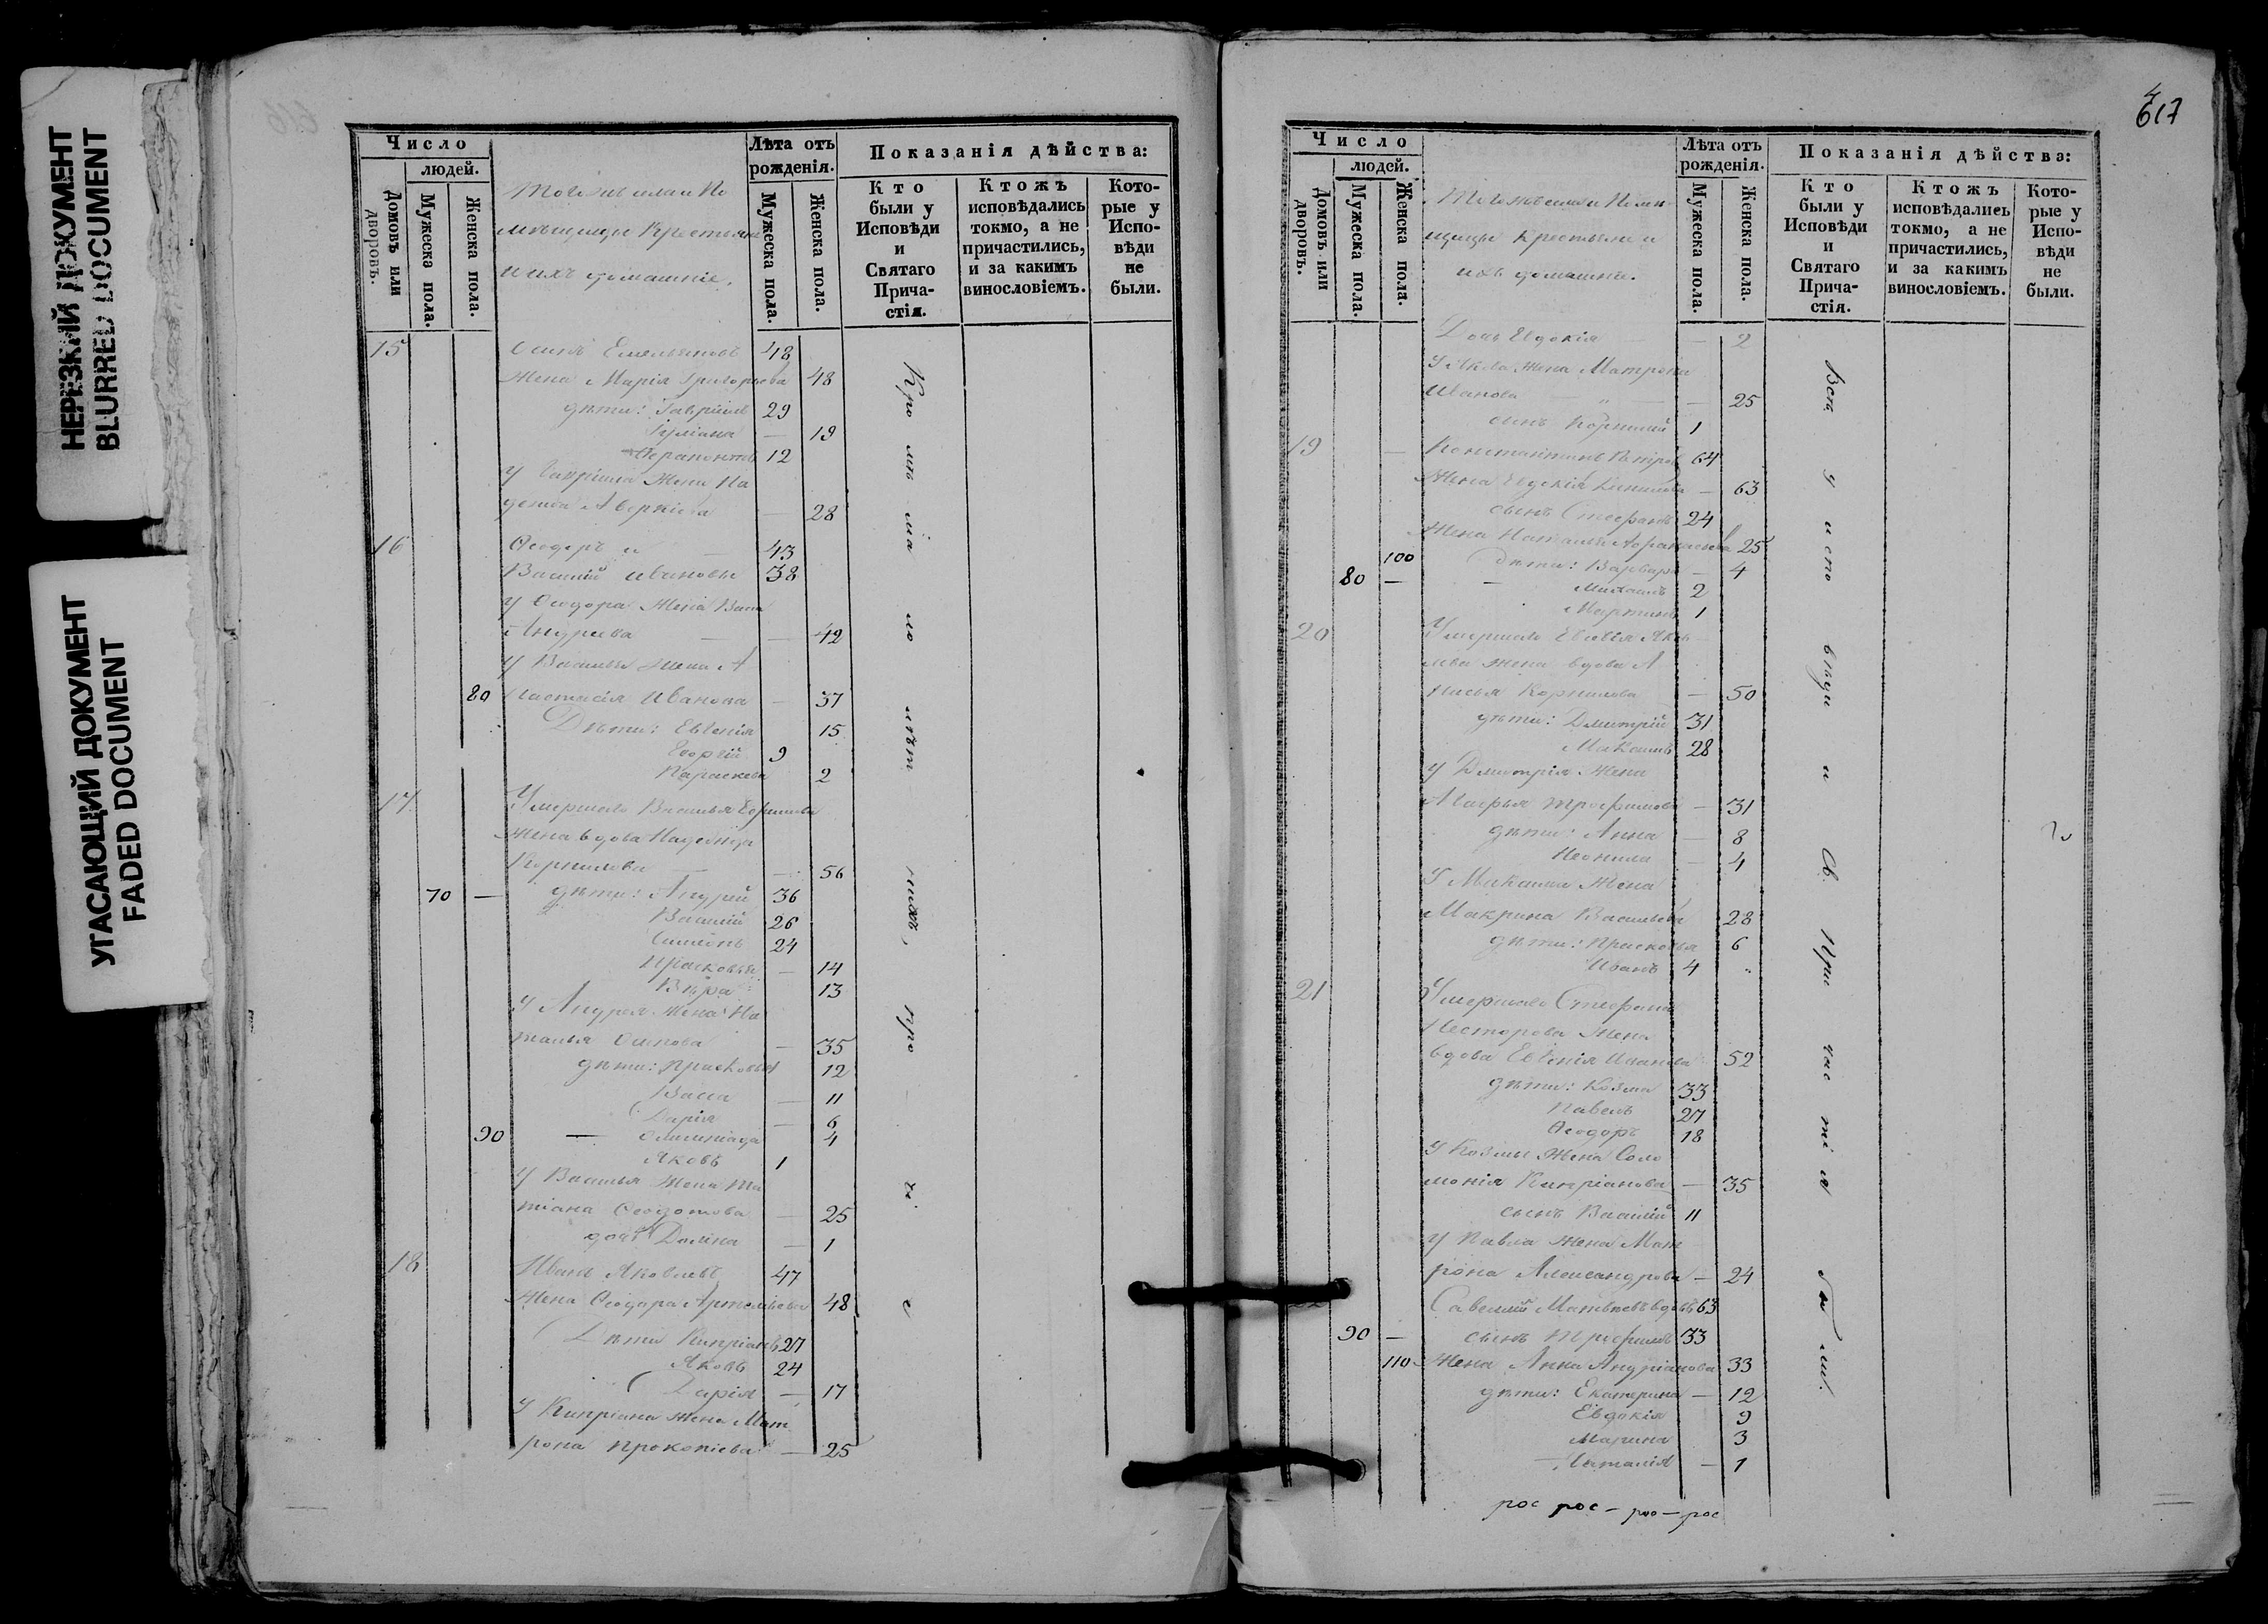 НЕРЕЗКИЙ ДОКУМЕНТ
BLURRED DOCUMENT
УГАСАЮЩИЙ ДОКУМЕНТ
FADED DOCUMENT
Число
людей.
Домовъ или дворовъ.
Мужеска пола.
Женска пола.
Тогожъ села и По
мѣщицы Крестьяне
и ихъ домашніе.
Лѣта отъ рожденія.
Мужеска пола.
Женска пола.
Показанія дѣйства:
Кто были у Исповѣди и Святаго Прича-стія.
Ктожъ исповѣдались токмо, а не причастились, и за какимъ винословіемъ.
Кото-рые у Испо-вѣди не были.
15 Осипъ Емельяновъ 48
Жена Марія Григорьева 48
дѣти: Гавріилъ 29
Іуліана — 19
Ферапонтъ 12
У Гавріила Жена На
дежда Аверкіева — 28
16 Ѳеодоръ и — 43
Василій Ивановы 38
У Ѳеодора Жена Васса
Андреева — — 42
У Василья Жена А
80 настасія Иванова — 37
Дѣти: Евгенія 15
Георгій 9
Параскева 2
17 Умершаго Василья Ефимова
Жена вдова Надежда
Корнилова — — 56
70 — дѣти: Андрей 36
Василій 26
Симеонъ 24
Прасковья — 14
Вѣра 13
У Андрея Жена На
талья Осипова — 35
дѣти: Прасковья 12
Васса — 11
Дарія — 6
90 — Олимпіада 4
Яковъ 1
У Василья Жена Та
тіана Ѳеодотова — 25
дочь Домна — 1
18 Иванъ Яковлевъ 47
Жена Ѳеодора Артемьева 48
Дѣти Кипріанъ 27
Яковъ 24
Дарія — 17
У Кипріана Жена Мат
рона Прокопіева — 25
617
Число
людей.
Домовъ или дворовъ.
Мужеска пола.
Женска пола.
Тогожъ села и Помѣ
щицы Крестьяне и
ихъ домашніе.
Лѣта отъ рожденія.
Мужеска пола.
Женска пола.
Показанія дѣйства:
Кто были у Исповѣди и Святаго Прича-стія.
Ктожъ исповѣдались токмо, а не причастились, и за какимъ винословіемъ.
Кото-рые у Испо-вѣди не были.
Дочь Евдокія — 2
У Якова Жена Матрона
Иванова — „ — — 25
сынъ Корнилій 1
19 — Константинъ Петровъ 64
Жена Евдокія — 63
сынъ Стефанъ 24
Жена Наталья Афанасьева 25
100 Дѣти: Варвара — 4
80 — — Михаилъ 2
Мартинъ 1
20 Умершаго Евсевія Яков
лева жена вдова А
нисья Корнилова — 50
дѣти: Дмитрій 31
Максимъ 28
У Дмитрія Жена
Агафья Трофимова — 31
дѣти: Анна — 8
Неонила — 4
У Максима Жена
Макрина Васильева 28
дѣти: Прасковья 6
Иванъ 4
21 Умершаго Стефана
Несторова Жена
вдова Евгенія Иванова 52
дѣти: Козма 33
Павелъ 27
Ѳеодоръ 18
У Козмы Жена Соло
монія Кипріанова — 35
сынъ Василій 11
У Павла Жена Мат
рона Александрова — 24
22 Савелій Матвѣевъ вдовъ 63
90 — сынъ Трофимъ 33
110 — Жена Анна Андріанова 33
дѣти: Екатерина — 12
Евдокія 9
Марина 3
Наталія — 1
Всѣ у исповѣди и Св. Причастія были.
рос рос — рос — рос